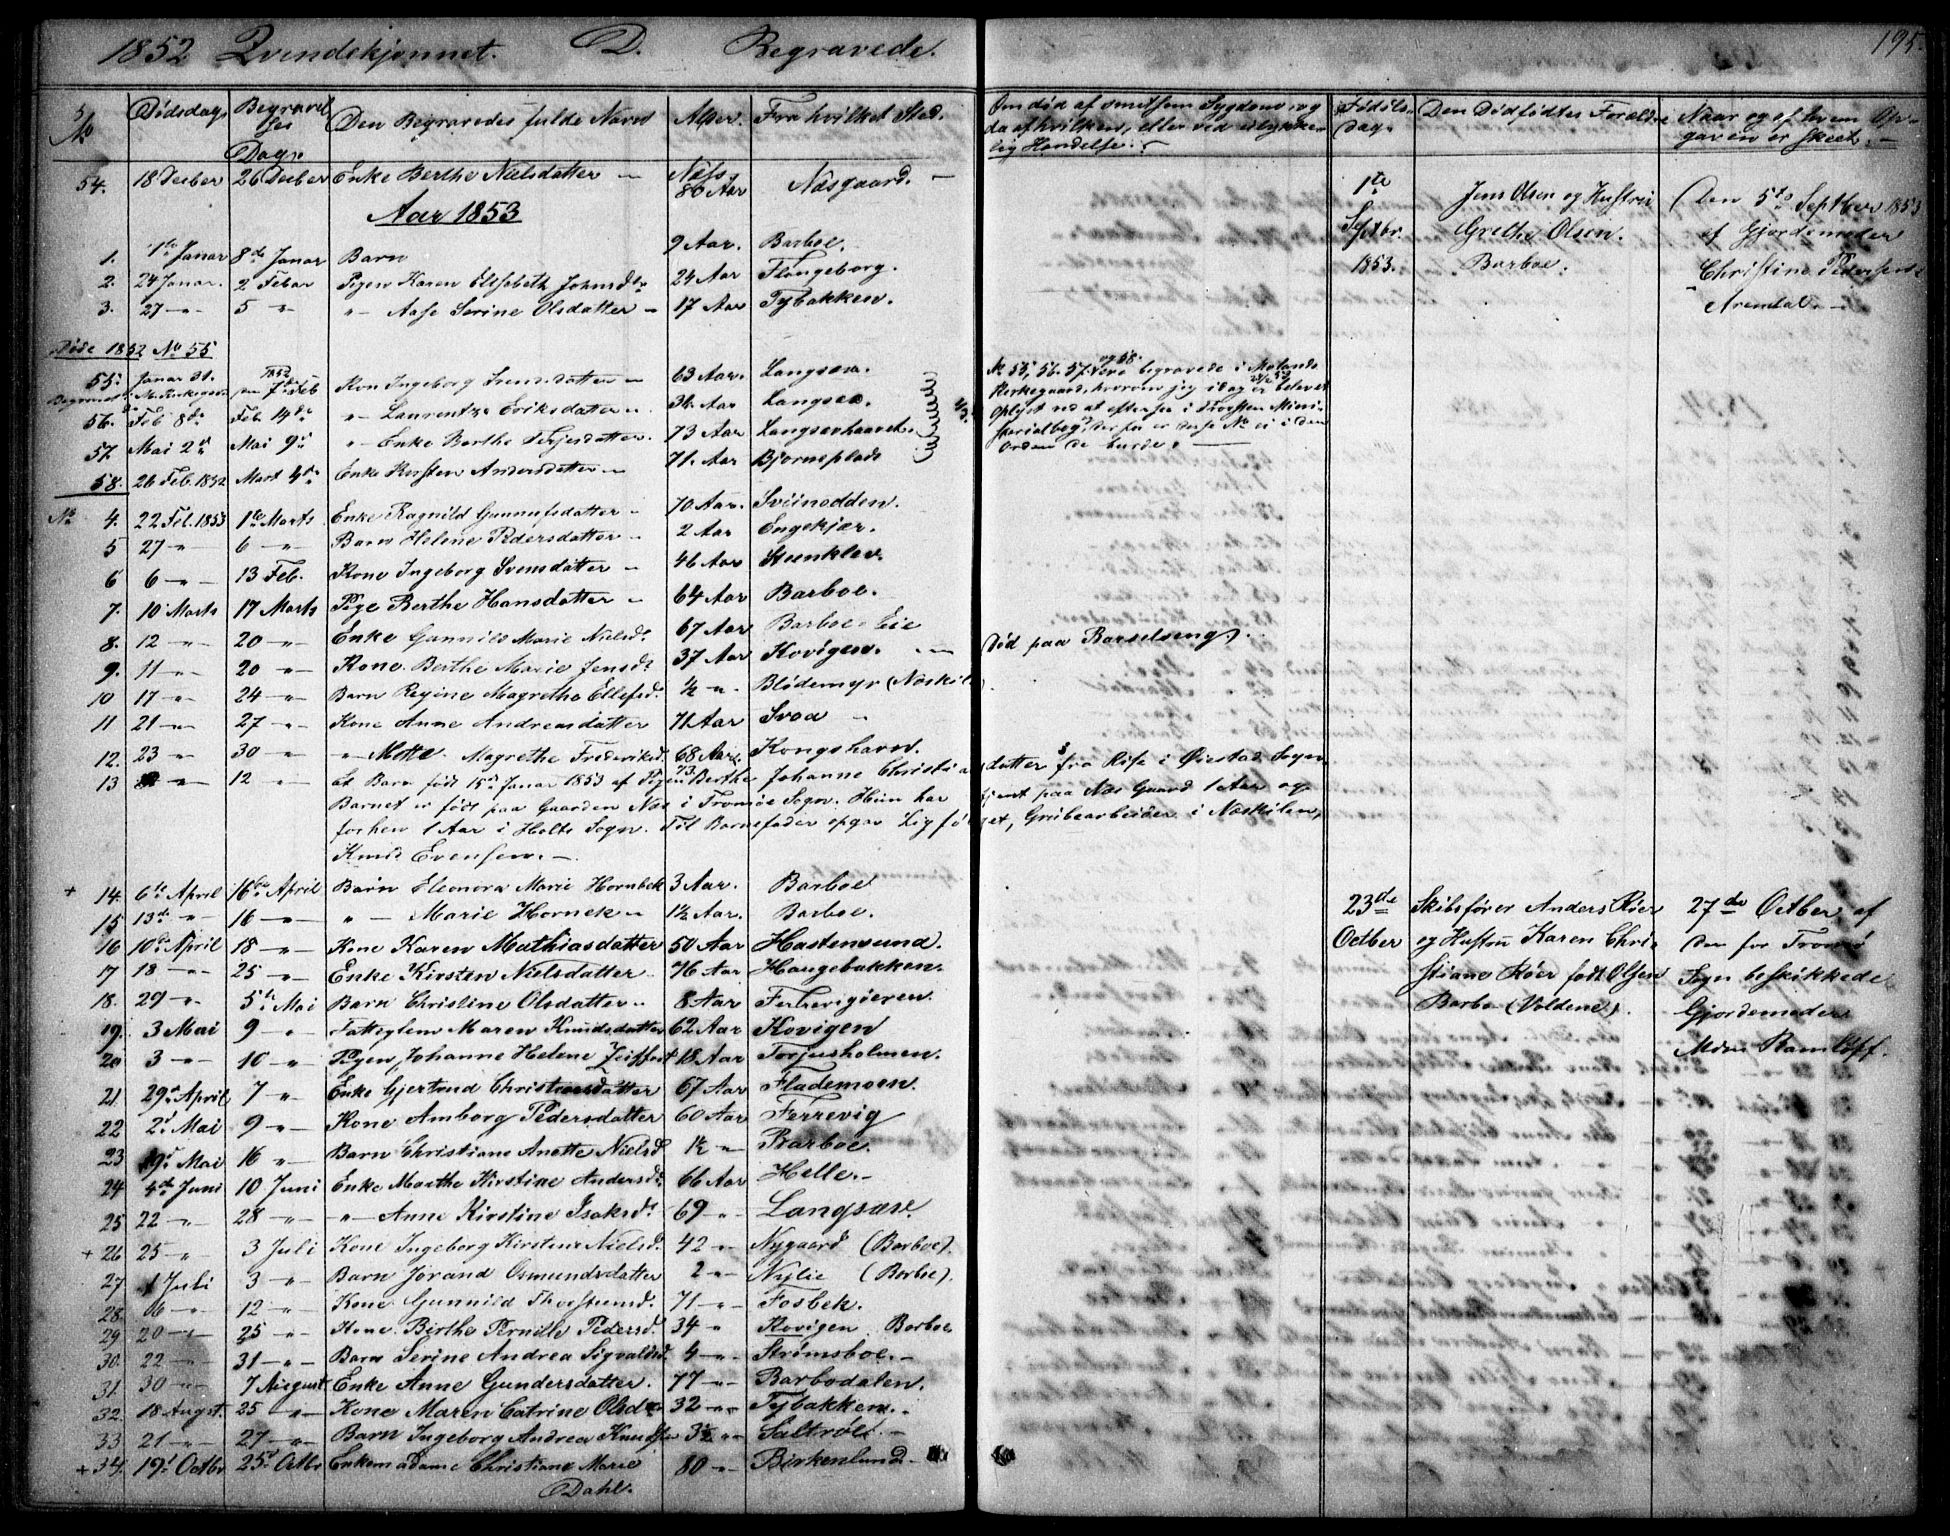 1852 Qvindekjønnet. D. Begravede. 195.
No Dødsdag Begravelses Dag. Den Begravedes fulde Navn Alder. Fra hvilket Sted. Om død af smitsom Sygdom, og da af hvilken, eller ved ulykkelig Hændelse. Fødsels dag. Den Dødfødtes Forældre Naar og af hvem Opgaven er skeet.
54. 18 Decber 26 Decber Enke Berthe Nielsdatter 86 Aar Næsgaard.
Aar 1853
1. 1ste Januar 8de Januar Barn 9 Aar. Barboe.
2. 24 Januar. 2 Febuar Pigen Karen Elisabeth Johnsdtr 24 Aar Flangeborg.
3. 27 5 Aase Serine Olsdatter 17 Aar Tybakken.
1te Septbr. 1853. Jens Olsen og Hustru Grethe Olsen. Barboe. Den 5te Septber 1853 af Gjordemoder Christine Pedersen Arendal.
Døde 1852 No 55
55. Januar 31. 7de Feb Kon Ingeborg 63 Aar. Langsæe.
56. Feb 8de Feb. 14de Laurentze Eriksdatter 34 Aar Langsæe.
57. Mai 2den Mai 9de Enke Berthe Terjesdatter. 73 Aar Langsæehaavet.
58. 26 Feb. 1852 Mart 4de Enke Kirsten Andersdatter 71. Aar Bjørneplads
No 55, 56. 57. og 58. vare begravede i Molands
Kirkegaard, hvorom jeg idag er bleven
oplyst ved at efterse i Troesten Mini-
sterialbog, derfor er disse No ei i den
Orden de burde.
No 4. 22 Feb. 1853 1te Marts Enke Ragnild Gunnufsdatter 70 Aar. Sviinodden.
5 27 6 Barn Helene Pedersdatter 2 Aar Engekjær.
6 6 13 Feb. Kone Ingeborg Svensdatter 46 Aar Steenklev.
7. 10 Marts 17 Marts Pige Berthe Hansdatter 64 Aar Barboe.
8. 12 20 Enke Gunnild Marie Nielsd. 67 Aar Barboe Eie
9. 11 20 Kone. Berthe Marie Jensd. 37 Aar Kovigen. Død paa Barselseng.
10 17 24 Barn Regine Magrethe Ellefsd. ½ Blødemyr (Næskil).
11 21 27 Kone Anne Andreasdatter 71 Aar Svoa
12. 23 30 Mette Magrethe Frederiksd. 68 Aar. Kongshavn.
13 12 Et Barn født 15de Januar 1853 af Pigen Berthe Johanne Christiansdatter fra Rise i Øiestad Sogn.
Barnet er født paa Gaarden Næs i Tromøe Sogn. Hun har tjent paa Næs Gaard 1 Aar og
forhen 1 Aar i Holts Sogn. Til Barnefader opgav Ligfølget, Grubearbeider i Næskilen,
Knud Evensen.
+ 14. 6te April 16de April Barn Eleonora Marie Hornbek 3 Aar. Barboe
15 13de 16 Marie Hornek 1½ Aar. Barboe.
16 10de April 18 Kone Karen Mathiasdatter 50 Aar Hastensund.
17 18 25 Enke Kirsten Nielsdatter 76 Aar Haugebakken.
18. 29 5te Mai Barn Christine Olsdatter 8 Aar
19. 3 Mai 9 Fattiglem Maren Knudsdatter 62 Aar Kovigen
20 3 10 Pigen Johanne Helene Zeiffert 18 Aar Torjusholmen.
21 29de April 7 Enke Gjertrud Christensdatter 67 Aar Flademoen.
22 2d Mai 9 Kone Amborg Pedersdatter 60 Aar Færrevig
23 9de Mai 16 Barn Christiane Anette Nielsd 1½ Barboe.
24 4de Juni 10 Juni Enke Marthe Kirstine Andersd. 66 Aar Helle.
25 22 28 Anne Kirstine Isaksd. 69 Langsæe.
+ 26 25 3 Juli Kone Ingeborg Kirstine Nielsd. 42 Nygaard (Barboe).
27 1 Juli 3 Barn Jorand Osmundsdatter 2 Nylie (Barboe).
28. 6 12 Kone Gunnild Thorstensd. 71 Fosbek.
29 20 25 Kone Birthe Pernille Pedersd. 34 Kovigen Barboe
30. 22 31 Barn Serine Andrea Sigvaldsd. 4 Strømsboe.
31. 30 7 August Enke Anne Gundersdatter. 77 Barbodalen.
32. 18 Augst. 25 Kone Maren Catrine Olsd 32 Tybakken.
33 21 27 Barn Ingeborg Andrea Knudsd 3½ Saltrød.
+ 34. 19de Octbr 25de Octbr Enkemadame Christiane Marie Dahl. 80 Birkenlund.
23de Octber Skibsfører Anders Røer og Hustru Karen Christiane Røer født Olsen Barbo (Voldene). 27de Octber af den for Tromø Sogn beskikkede Gjordemoder Mdm Ramløff.